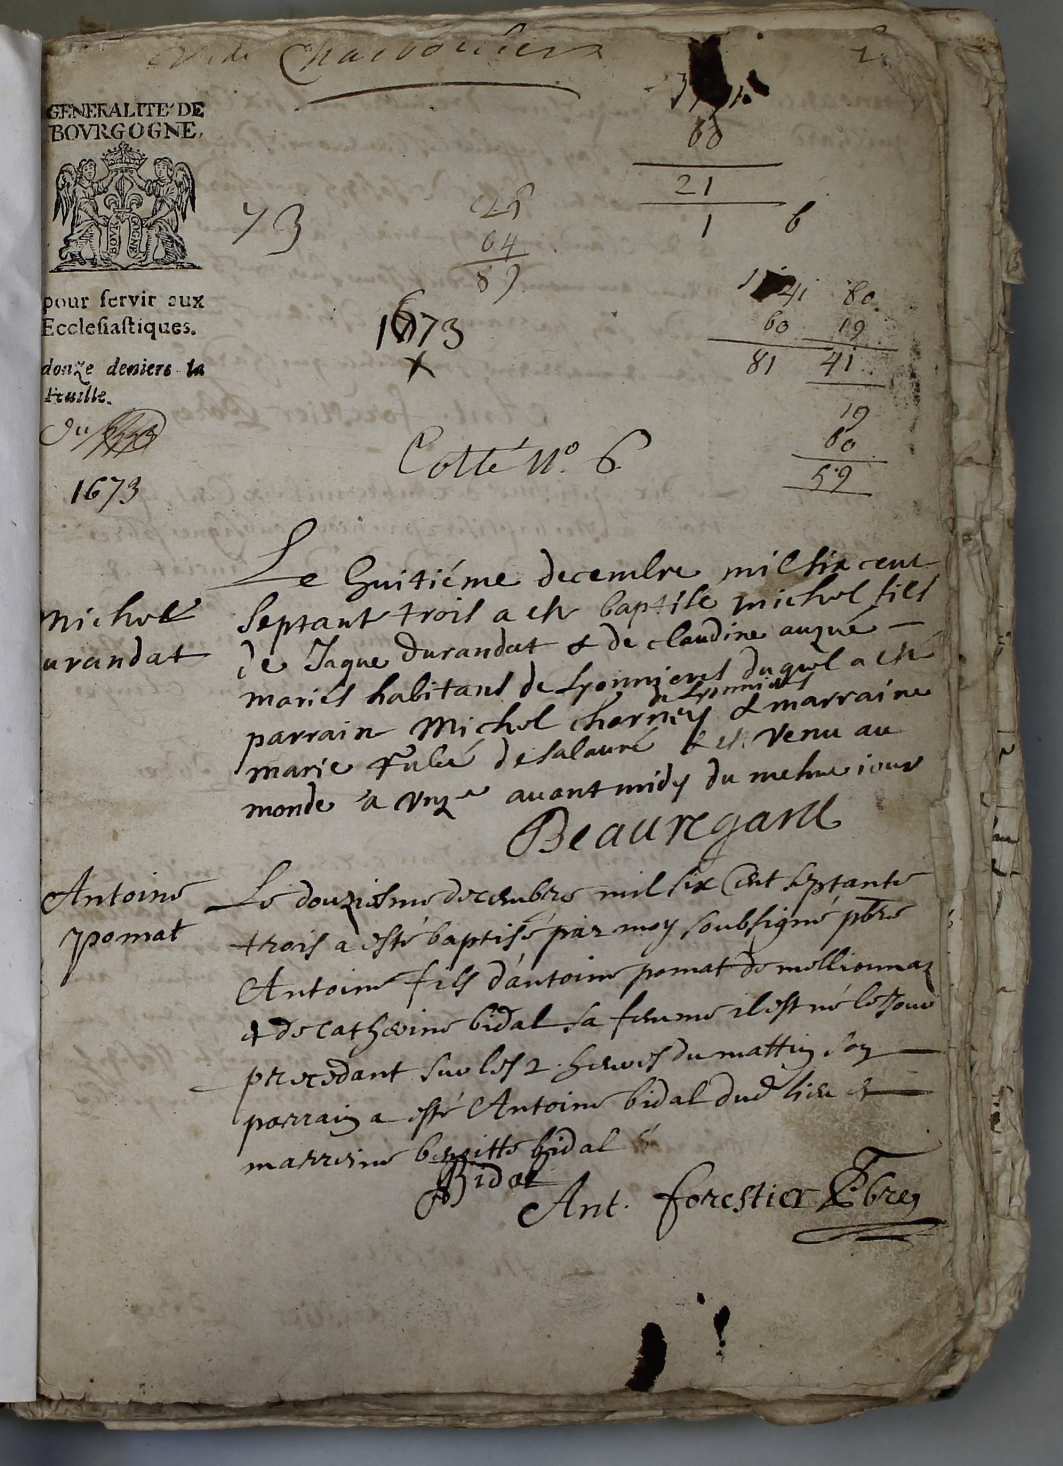 GENERALITÉ DE
BOVRGOGNE,
BOVR GOGNE
pour servir aux
Ecclesiastiques.
douze deniers la
Feuille.
Du
1673
88
21
1 6
73
64
89
1673
x
41 80
60 19
81 41
19
80
59
Cotté N.o 6.
Le huitiéme decembre mil six cent
Michel
urandat
septant trois a este baptise michel fils
de Jaque Durandat & de claudine auzué
mariés habitans de Lyonnieres duquel a esté
de Lyonnieres
parrain Michel charney & marraine
marie de salauré & est venu au
monde a avant midy du mesme iour
Beauregard
Antoine
pomat
Le douziesme decembre mil six Cent septante
trois a esté baptisé par moy soubsigné pbre
Antoine fils d'antoine pomat de mellionnaz
et de catherine bidal sa femme il est né le Jour
precedant sur les 2. heures du mattin son
parrain a esté Antoine bidal dud lieu et
marreine benoitte bidal
Bidal
Ant. forestier Pbre